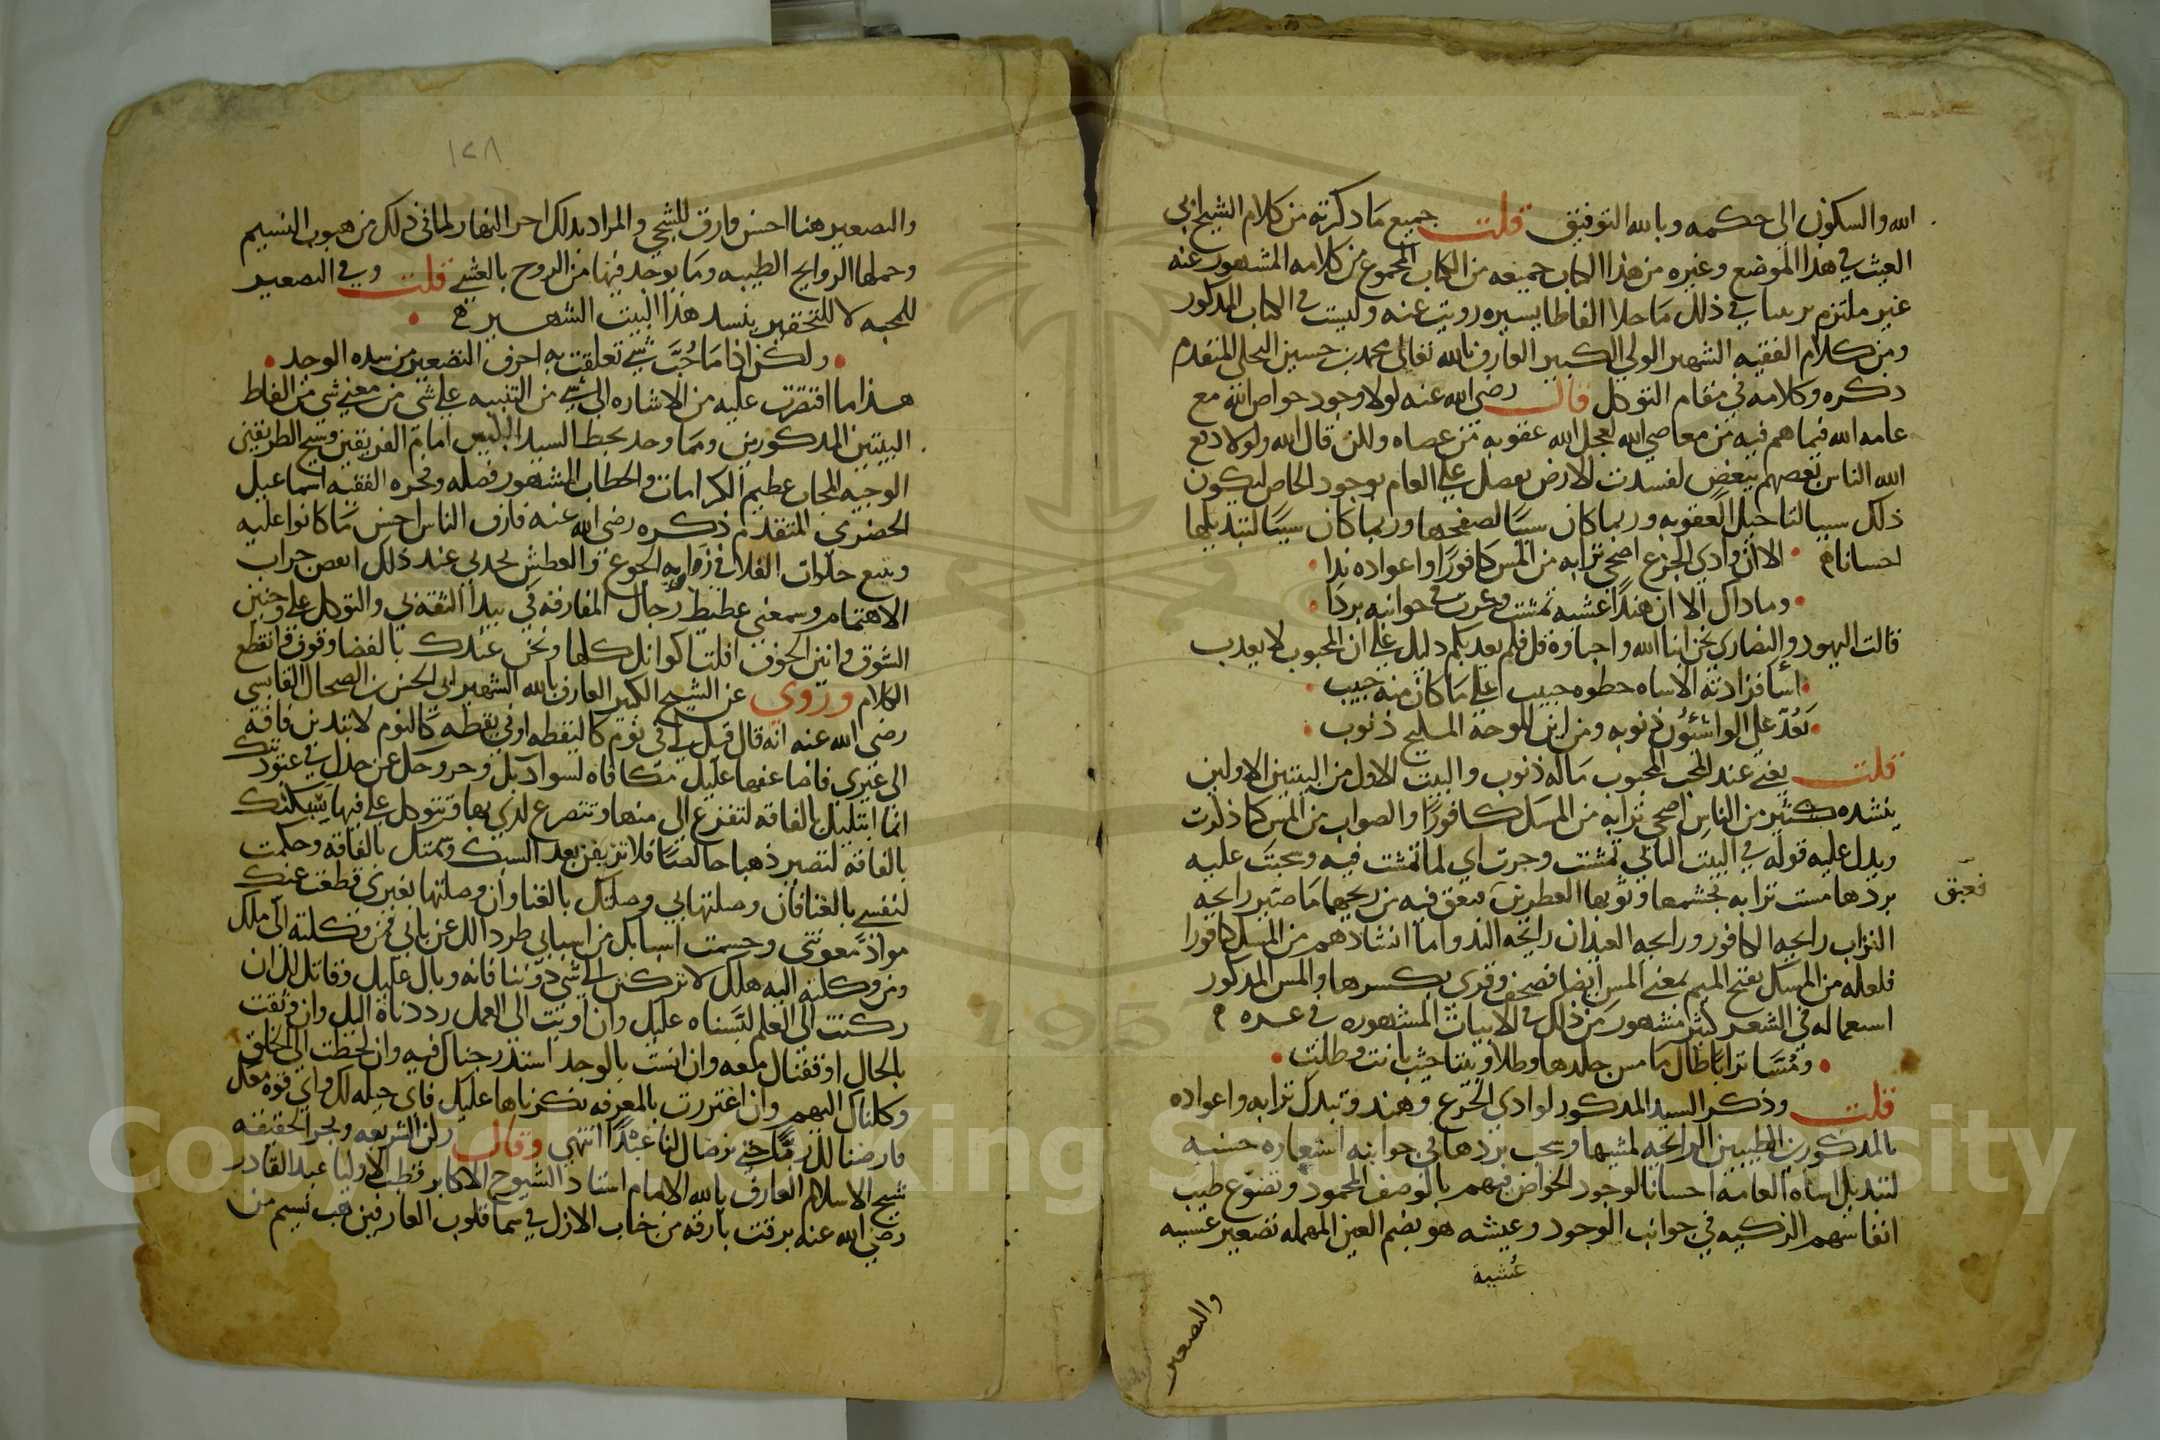 الله والسكون الى حكمه وبالله التوفيق قلت جميع ما ذكرته من كلام الشيخ ابي
الغيث في هذا الموضع وغيره من هذا الكتاب جميعه من الكتاب المجموع من كلامه المشهور عنه
غير ملتزم ترتيبا في ذلك ما خلا الفاظا يسيره رويت عنه وليست في الكتاب المذكور
ومن كلام الفقيه الشهير الولي الكبير العارف بالله تعالى محمد بن حسين البجلي المتقدم
ذكره وكلامه في مقام التوكل قال رضي الله عنه لولا وجود خواص الله مع
عامه الله فيما هم فيه من معاصي الله لعجل الله عقوبه من عصاه ولكن قال الله ولولا دفع
الله الناس بعضهم ببعض لفسدت الارض بفضل على العام بوجود الخاص ليكون
ذلك سببا لتاجيل العقوبه وربما كان سببا لصفحها وربما كان سببا لتبديلها
احسانا الا ان وادي الجزع اضحى ترابه من المس كافورا واعواده ندا
وما ذاك الا ان هندا عشيه تمشت وجرت في جوانبه بردا
قالت اليهود والنصارى نحن ابنا الله واحباؤه قل فلم يعذبكم دليل على ان المحبوب لا يعذب
اسا فزادته الاساه حظوه حبيب على ما كان منه حبيب
يعد علي الواشون ذنوبه ومن اين للوجه المليح ذنوب
قلت يعني عند المحب المحبوب ما له ذنوب والبيت الاول من البيتين الاولين
ينشده كثير من الناس اضحى ترابه من المسك كافورا والصواب من المس كما ذكرت
ويدل عليه قوله في البيت الثاني تمشت وجرت اي لما تمشت فيه وسحبت عليه
بردها مست ترابه بجسمها وثوبها العطرين فعبق فيه من ريحهما ما صير رايحه
فعبق
التراب رايحه الكافور ورايحه العيدان رايحه الند واما انشادهم من المسك كافورا
فلعله من المسك بفتح الميم بمعنى المس ايضا فصحف وقرى بكسرها والمس المذكور
استعماله في الشعر كثير مشهور من ذلك في الابيات المشهوره في عزه
ومسا ترابا طال ما مس جلدها وظلا وبيتا حيث باتت وظلت
قلت وذكر السيد المذكور لوادي الجزع وهند وتبدل ترابه واعواده
بالمذكورين الطيبين الرايحه لمشيها وسحب بردها في جوانبه استعاره حسنه
لتبديل اساه العامه احسانا لوجود الخواص فيهم بالوصف المحمود وتضوع طيب
انفاسهم الزكيه في جوانب الوجود وعيشه هو بضم العين المهمله تصغير عشيه
عشية
والتصغير
١٢٨
والتصغير هنا احسن وارق للشجي والمراد بذلك اخر النهار لما في ذلك من هبوب النسيم
وحملها الروايح الطيبه وما يوجد فيها من الروح بالعشي قلت وفي التصغير
للمحبه لا للتحقير ينشد هذا البيت الشهير
ولكن اذا ما حب شي تعلقت به احرف التصغير من شده الوجد
هذا ما اقتصرت عليه من الاشاره الى شي من التنبيه على شي من معنى شي من الفاظ
البيتين المذكورين ومما وجد بخط السيد امام الفريقين وشيخ الطريقين
الوجيه المجاب عظيم الكرامات والخطاب المشهور فضله وفخره الفقيه اسماعيل
الحضرمي المتقدم ذكره رضي الله عنه فارق الناس احسن ما كانوا عليه
وتتبع خلوات الفلا في زوايه الجوع والعطش تجدني عند ذلك
الاهتمام وسمعني رجال المفارقه في بيدا الثقه بي والتوكل علي وحنين
الشوق وانين الخوف كلها ونحن عندك بالفضا وقوف وانقطع
الكلام وروى عن الشيخ الكبير العارف بالله الشهير ابي الحسن الفاسي
رضي الله عنه انه قال قيل لي في نوم كاليقظه او في يقظه كالنوم لا تبدين فاقة
الى غيري فاضاعفها عليك مكافاه لسوء ادبك وخروجك عن حدك في عبوديتك
انما ابتليتك بالفاقه لتفزع الي منها وتتضرع لدي بها وتتوكل علي فيها
بالفاقه لتصير ذهبا خالصا فلا تزيفن بعد السبك وسمتك بالفاقه وحكمت
لنفسي بالغنا فان وصلتها بي وصلتك بالغنا وان وصلتها بغيري قطعت عنك
مواد معونتي وحسمت اسبابك من اسبابي طردا لك عن بابي فمن وكلته الي ملك
ومن وكلته اليه هلك لا تركنن الى شي دوننا فانه وبال عليك وقاتل لك ان
ركنت الى العلم عليك وان اويت الى العمل رددناه اليك وان وثقت
بالحال اوقفناك معه وان انست بالوجد استدرجناك فيه وان لحظت الى الخلق
وكلناك اليهم وان اغتررت بالمعرفه نكرناها عليك فاي حيله لك واي قوه معك
فارضنا لك ربا حتى نرضاك لنا عبدا انتهى وقال الشريعه
شيخ الاسلام العارف بالله الامام استاذ الشيوخ الاكابر قطب الاوليا عبد القادر
رضي الله عنه برقت بارقه من جناب الازل في سما قلوب العارفين هب نسيم من